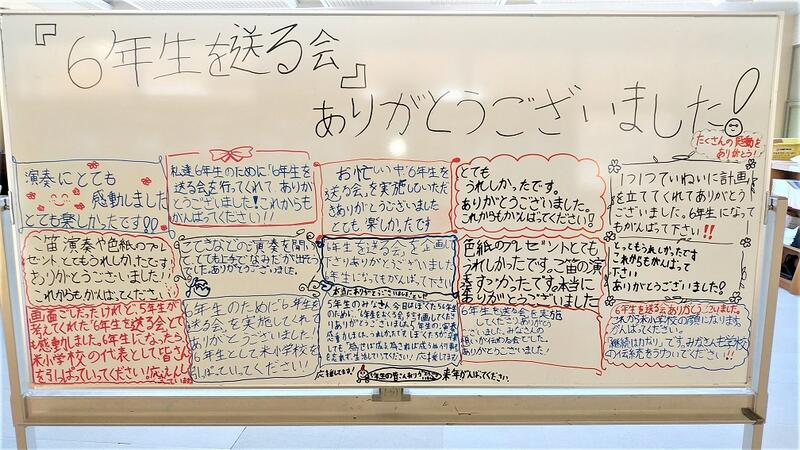 『6年生を送る会』
ありがとうございました!
たくさんの感動を
ありがとう!!
演奏にとても
感動しました
とても楽しかったです!!
私達6年生のために「6年生を
送る会」を行ってくれて、ありが
とうございました!これからも
がんばってください!!
お忙しい中「6年生を
送る会」を実施していただ
きありがとうございました
とても楽しかったです
とても
うれしかったです。
ありがとうございました。
これからもがんばってください!
1つ1つていねいに計画
を立ててくれてありがとう
ございました。6年生になって
もがんばって下さい!!
ご笛演奏や色紙のプレ
ゼントとてもうれしかったです
ありがとうございました!!
これからもがんばってください。
してきなどのご演奏を聞い
て、とても上手でなみだが出そう
でした。ありがとうございました。
6年生を送る会」を企画
下さりありがとうございました
6年生になってもがんばって下さい
色紙のプレゼントとても
うれしかったです。ご笛の演
奏すごかったです。本当に
ありがとうございました
とってもうれしかったです
これからもがんばって
下さい
ありがとうございました!
画面ごしだったけれど、5年生が
考えてくれた「6年生を送る会」とて
も感動しました。6年生になったら
米小学校の代表として皆さん
を引っぱっていってください!応えん
6年生のために「6年生を
送る会」を実施してくれて
ありがとうございました!
6年生として米小学校を
引っぱっていって下さい!
5年生のみなさん、今日はぼくたち6年生
のために、「6年生を送る会」を計画してくださ
りありがとうございました。5年生の演奏
6年生を送る会を実施
してくださりありがとう
ございました。みなさんの
思いが伝わる会でした。
ありがとうございました!
6年生を送る会ありがとうございました。
米小学校の顔になります。
がんばってください。
「継続は力なり」です。みなさんも学校
の伝統を守っていってください!!
応援してます!
来年がんばってください。